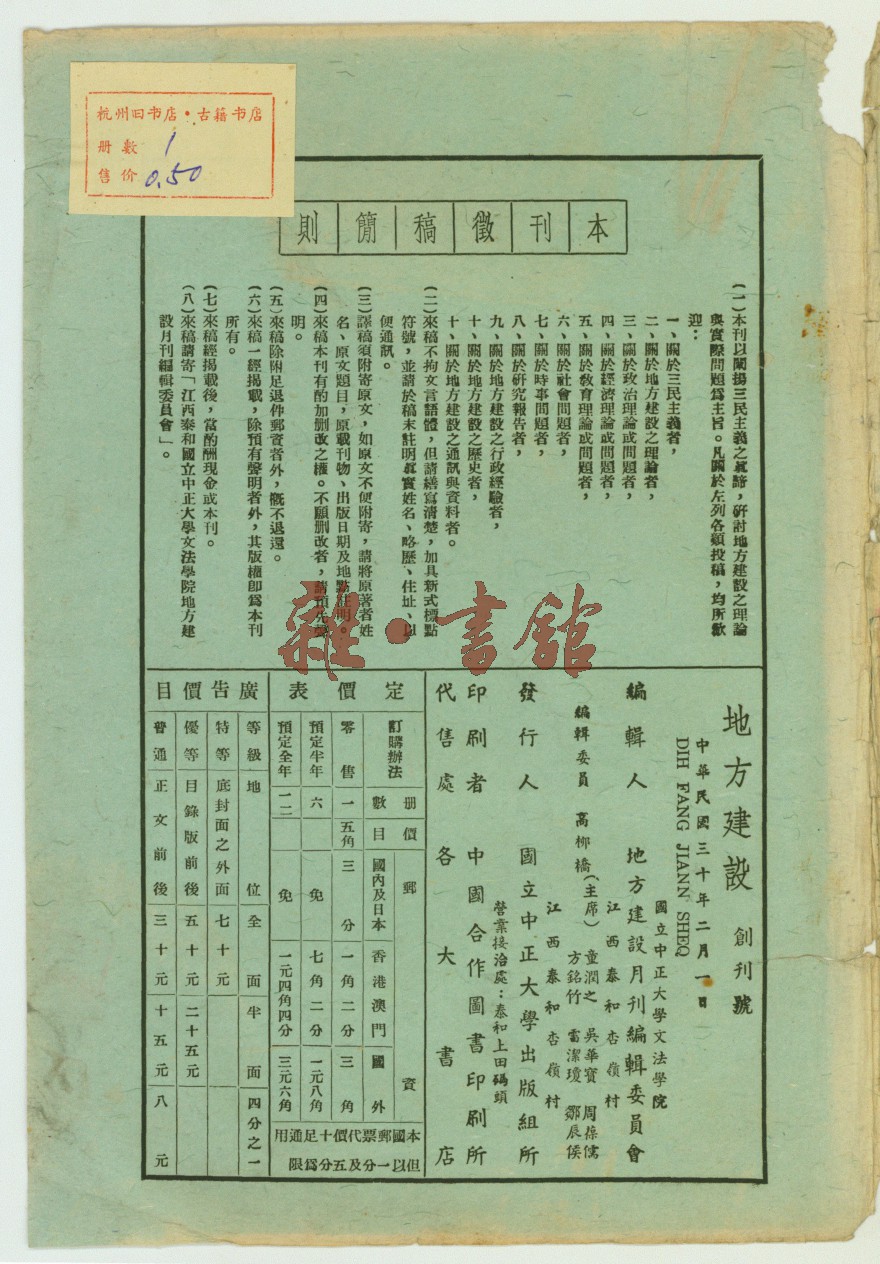 杭州旧书店・古籍书店
册数 1
售价 0.50
本刊徵稿簡則
(一)本刊以闡揚三民主義之眞諦,硏討地方建設之理論
與實際問題爲主旨。凡關於左列各類投稿,均所歡
迎:
一、關於三民主義者,
二、關於地方建設之理論者,
三、關於政治理論或問題者,
四、關於經濟理論或問題者,
五、關於敎育理論或問題者,
六、關於社會問題者,
七、關於時事問題者,
八、關於硏究報吿者,
九、關於地方建設之行政經驗者,
十、關於地方建設之歷史者,
十、關於地方建設之通訊與資料者。
(二)來稿不拘文言語體,但請繕寫淸楚,加具新式標點
符號,並請於稿末註明眞實姓名、略歷、住址、以
便通訊。
(三)譯稿須附寄原文,如原文不便附寄,請將原著者姓
名、原文題目,原載刊物、出版日期及地點註明。
(四)來稿本刊有酌加删改之權。不願删改者,請預先聲
明。
(五)來稿除附足退件郵資者外,槪不退還。
(六)來稿一經揭載,除預有聲明者外,其版權卽爲本刊
所有。
(七)來稿經揭載後,當酌酬現金或本刊。
(八)來稿請寄「江西泰和國立中正大學文法學院地方建
設月刊編輯委員會」。
雜・書館
地方建設 創刊號
中華民國三十年二月一日
DIH FANG JIANN SHEQ
國立中正大學文法學院
江西泰和杏嶺村
編輯人 地方建設月刊編輯委員會
編輯委員 高柳橋(主席) 童潤之 吳華寶 周葆儒
方銘竹 雷潔瓊 鄒辰侯
江西泰和杏嶺村
發行人 國立中正大學出版組所
營業接洽處:泰和上田碼頭
印刷者 中國合作圖書印刷所
代售處 各大書店
定價表
訂購辦法 册數 價目 郵資
國內及日本 香港澳門 國外
零售 一 五角 三分 一角二分 三角
預定半年 六 免 七角二分 一元八角
預定全年 一二 免 一元四角四分 三元六角
本國郵票代價十足通用
但以一分及五分爲限
廣吿價目
等級 地位 全面 半面 四分之一
特等 底封面之外面 七十元
優等 目錄版前後 五十元 二十五元
普通 正文前後 三十元 十五元 八元